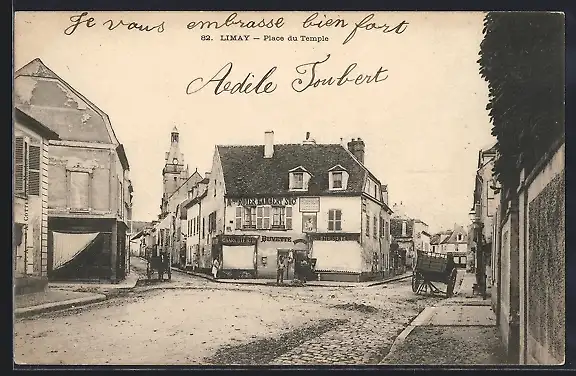 Je vous embrasse bien fort
82. LIMAY — Place du Temple
Adèle Joubert
BUVETTE